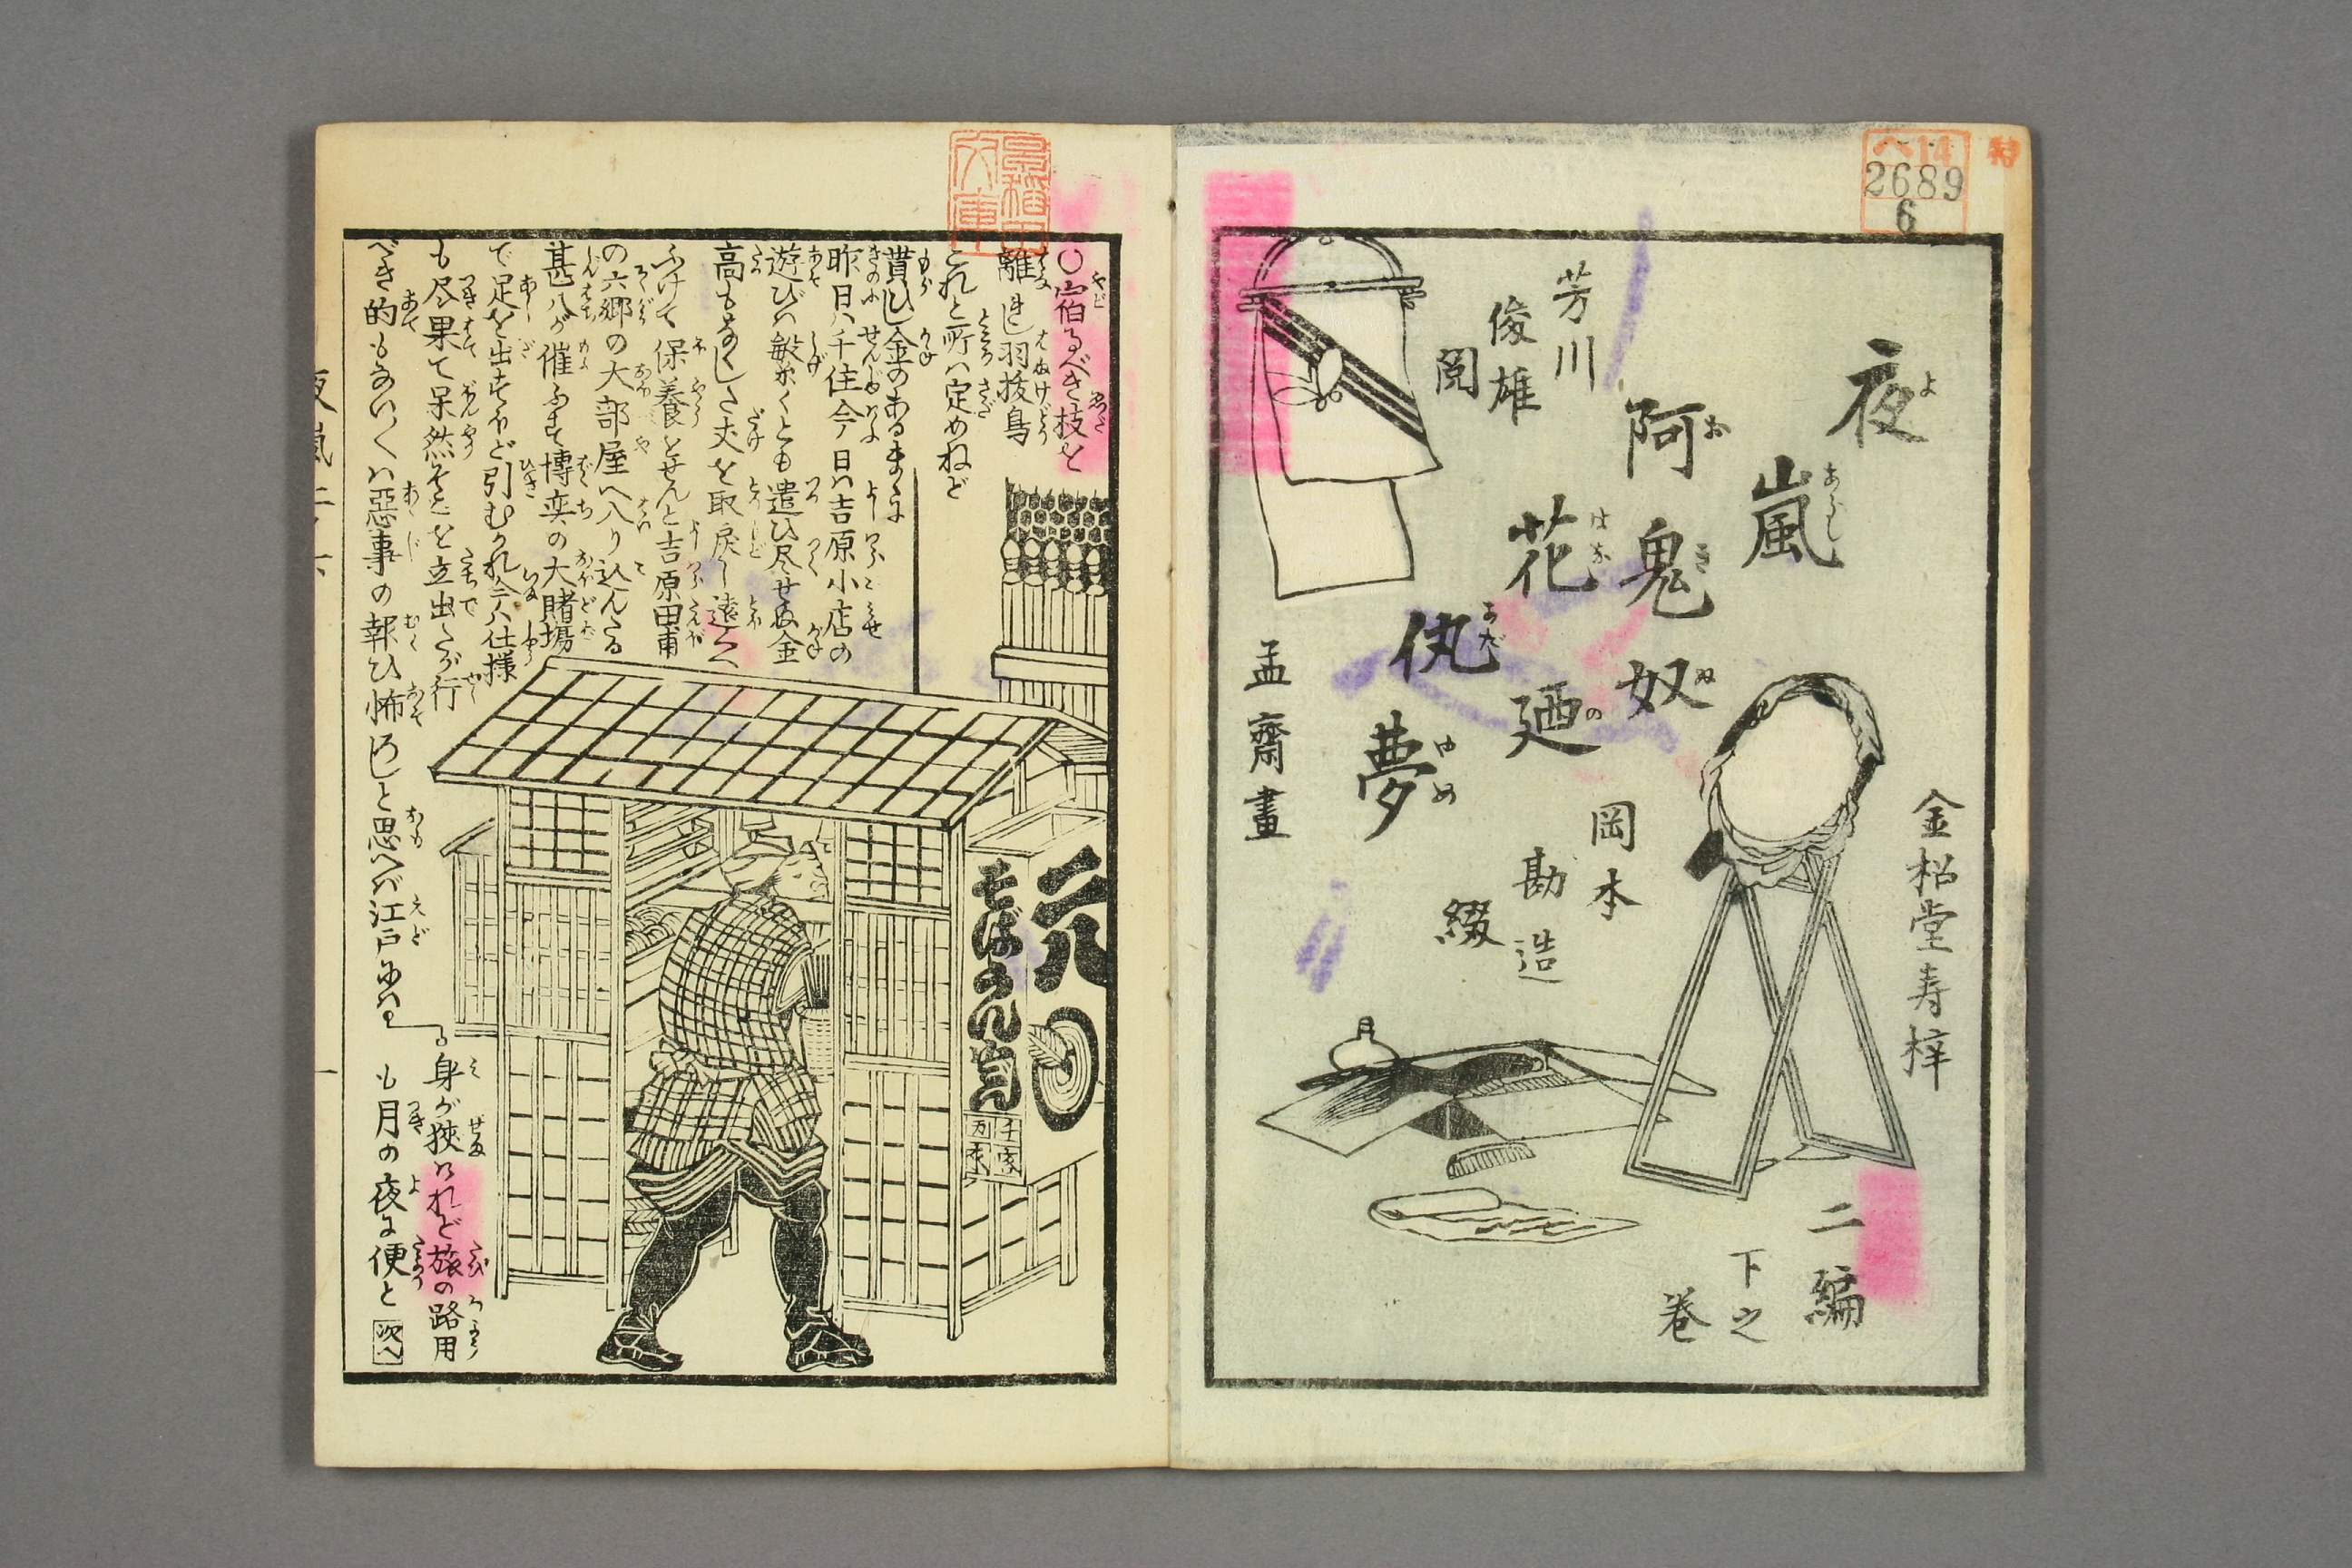 特
ヘ14
2689
6
夜嵐
阿鬼奴
花廼
仇夢
よ
あらし
おきぬ
はなの
あだ
ゆめ
芳川
俊雄
閲
金松堂寿梓
岡本
勘造
綴
孟齋畫
二編
下之
巻
○宿るべき枝を
離れし羽抜鳥
これと所ハ定めねど
貰ひし金のあるまゝに
昨日ハ千住今日ハ吉原小店の
遊びハ敏くとも遣ひ尽せぬ金
高もなくした丈を取戻し遠く
ふけて保養をせんと吉原田甫
の六郷の大部屋へ入り込んだる
甚八が催ふす博奕の大賭場
で足を出すほど引むかれ今ハ仕様
も尽果て呆然そこを立出たが行
べき的もあいく
ハ惡事の報ひ怖ろしと思へバ江戸にハ
身が狹けれど旅の路用
も月の夜に便と
次へ
二八
そばうん飩
千客
万来
夜嵐二ノ下
一